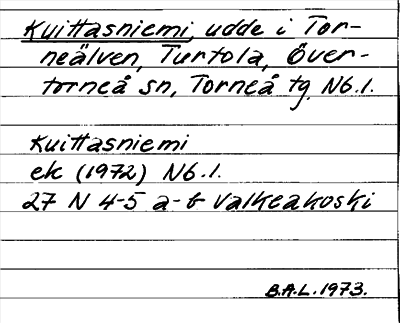 Kuittasniemi, udde i Tor-
neälven, Turtola, Över-
torneå sn, Torneå tg. N6.1.
Kuittasniemi
ek (1972) N6.1.
27 N 4-5 a-b Valkeakoski
B.A.L. 1973.